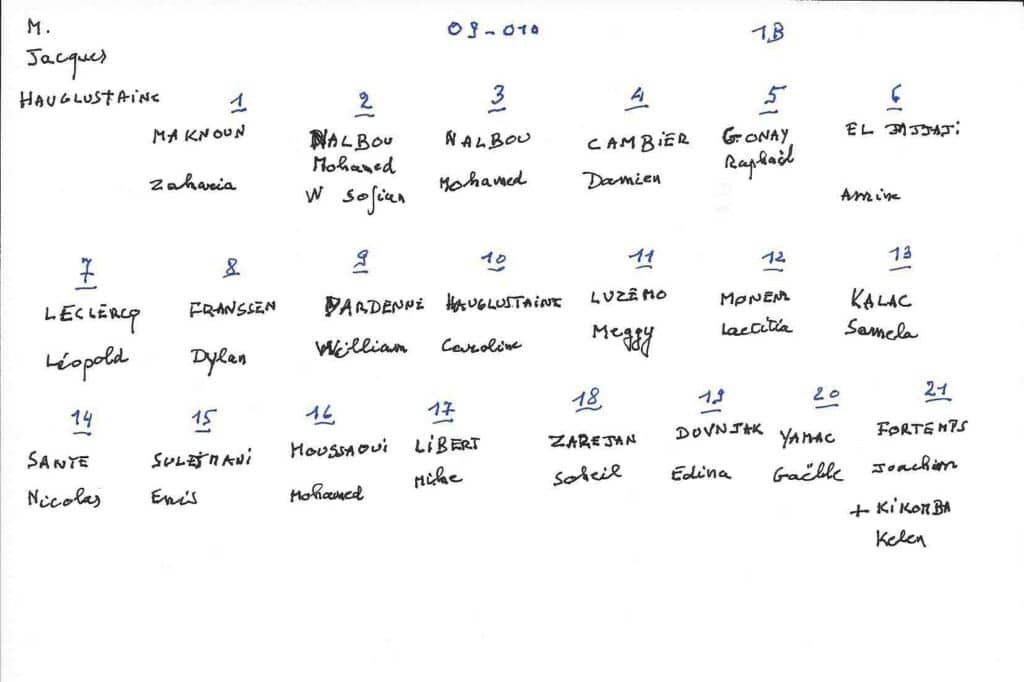 M. 09-010 1B
Jacques
HAUGLUSTAINE
1 2 3 4 5 6
MAKNOUN NALBOU NALBOU CAMBIER GONAY EL JAJJAJI
Zakaria Mohamed Mohamed Damien Raphaël Amine
W Sofian
7 8 9 10 11 12 13
LECLERCQ FRANSSEN DARDENNE HAUGLUSTAINE LUZEMO MONEM KALAC
Léopold Dylan William Caroline Meggy Laetitia Samela
14 15 16 17 18 19 20 21
SANTE SULEJMANI MOUSSAOUI LIBERT ZAREJAN DOVNJAK YAMAC FORTEMPS
Nicolas Enis Mohamed Mike Soheil Edina Gaëlle Joachim
+ KIKOMBA
Kelen